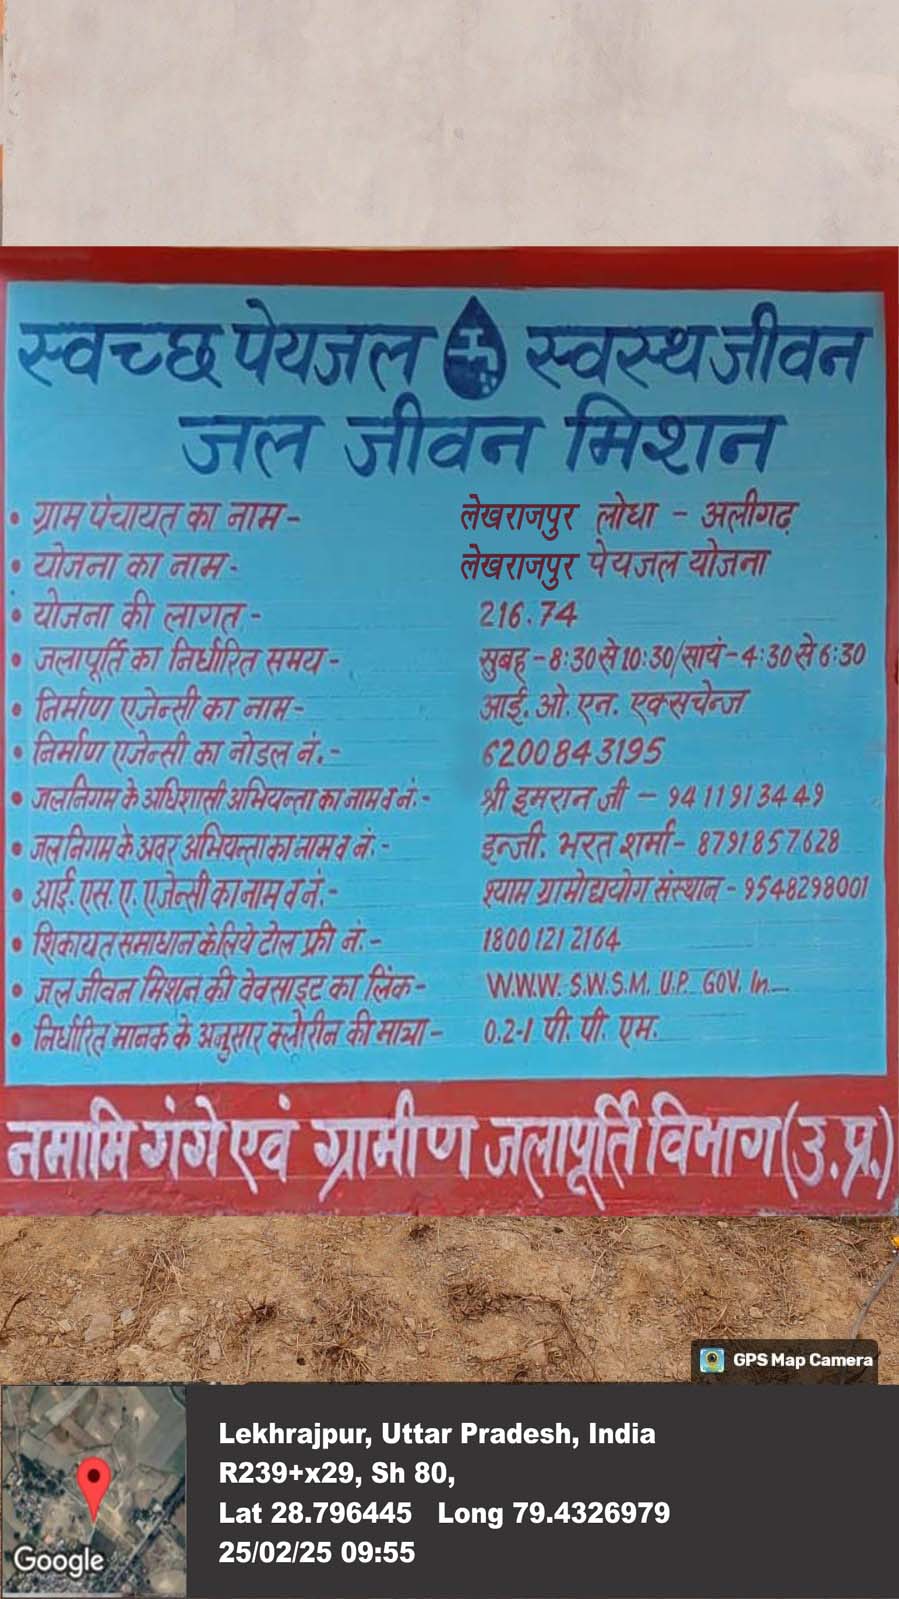 स्वच्छ पेयजल स्वस्थ जीवन
जल जीवन मिशन
• ग्राम पंचायत का नाम - लेखराजपुर लोधा - अलीगढ़
• योजना का नाम - लेखराजपुर पेयजल योजना
• योजना की लागत - 216.74
• जलापूर्ति का निर्धारित समय - सुबह - 8:30 से 10:30/सायं - 4:30 से 6:30
• निर्माण एजेन्सी का नाम - आई. ओ. एन. एक्सचेन्ज
• निर्माण एजेन्सी का नोडल नं. - 6200843195
• जलनिगम के अधिशासी अभियन्ता का नाम व नं. - श्री इमरान जी - 9411913449
• जलनिगम के अवर अभियन्ता का नाम व नं. - इन्जी. भरत शर्मा - 8791857628
• आई. एस. ए. एजेन्सी का नाम व नं. - श्याम ग्रामोद्ययोग संस्थान - 9548298001
• शिकायत समाधान के लिये टोल फ्री नं. - 1800121 2164
• जल जीवन मिशन की वेबसाइट का लिंक - W.W.W. S.W.S.M. U.P. GOV. In
• निर्धारित मानक के अनुसार क्लोरीन की मात्रा - 0.2-1 पी. पी. एम.
नमामि गंगे एवं ग्रामीण जलापूर्ति विभाग (उ.प्र.)
GPS Map Camera
Lekhrajpur, Uttar Pradesh, India
R239+x29, Sh 80,
Lat 28.796445 Long 79.4326979
25/02/25 09:55
Google